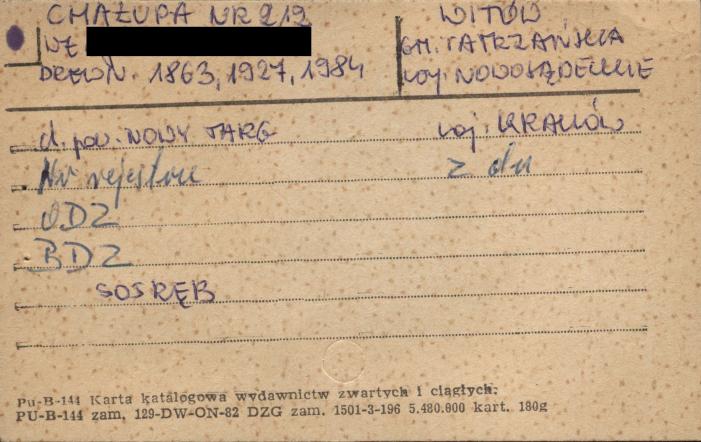 CHAŁUPA NR 212
WITÓW
WŁ
GM. TATRZAŃSKA
DREWN. 1863, 1927, 1984
woj. NOWOSĄDECKIE
d. pow. NOWY TARG
woj. KRAKÓW
Nr rejestru
z dn
ODZ
BDZ
SOSRĘB
Pu-B-144 Karta katalogowa wydawnictw zwartych i ciągłych:
PU-B-144 zam. 129-DW-ON-82 DZG zam. 1501-3-196 5.480.000 kart. 180g